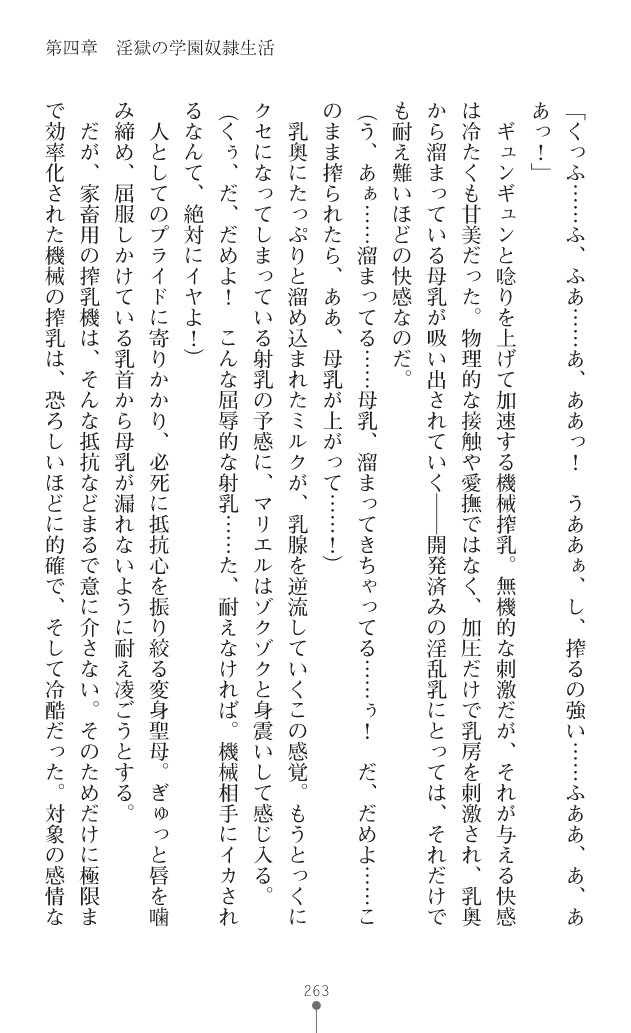 第四章　淫獄の学園奴隷生活
「くっふ……ふ、ふあ……あ、ああっ！　うああぁ、し、搾るの強い……ふああ、あ、あ
あっ！」
　ギュンギュンと唸りを上げて加速する機械搾乳。無機的な刺激だが、それが与える快感
は冷たくも甘美だった。物理的な接触や愛撫ではなく、加圧だけで乳房を刺激され、乳奥
から溜まっている母乳が吸い出されていく――開発済みの淫乱乳にとっては、それだけで
も耐え難いほどの快感なのだ。
（う、あぁ……溜まってる……母乳、溜まってきちゃってる……ぅ！　だ、だめよ……こ
のまま搾られたら、ああ、母乳が上がって……！）
　乳奥にたっぷりと溜め込まれたミルクが、乳腺を逆流していくこの感覚。もうとっくに
クセになってしまっている射乳の予感に、マリエルはゾクゾクと身震いして感じ入る。
（くぅ、だ、だめよ！　こんな屈辱的な射乳……た、耐えなければ。機械相手にイカされ
るなんて、絶対にイヤよ！）
　人としてのプライドに寄りかかり、必死に抵抗心を振り絞る変身聖母。ぎゅっと唇を噛
み締め、屈服しかけている乳首から母乳が漏れないように耐え凌ごうとする。
　だが、家畜用の搾乳機は、そんな抵抗などまるで意に介さない。そのためだけに極限ま
で効率化された機械の搾乳は、恐ろしいほどに的確で、そして冷酷だった。対象の感情な
263